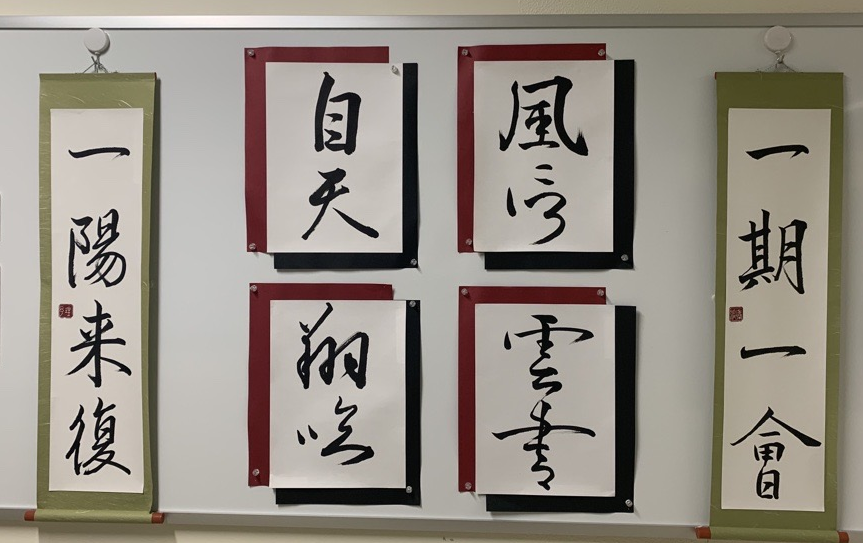 一期一會
風信
雲書
自天
翔臨
一陽来復